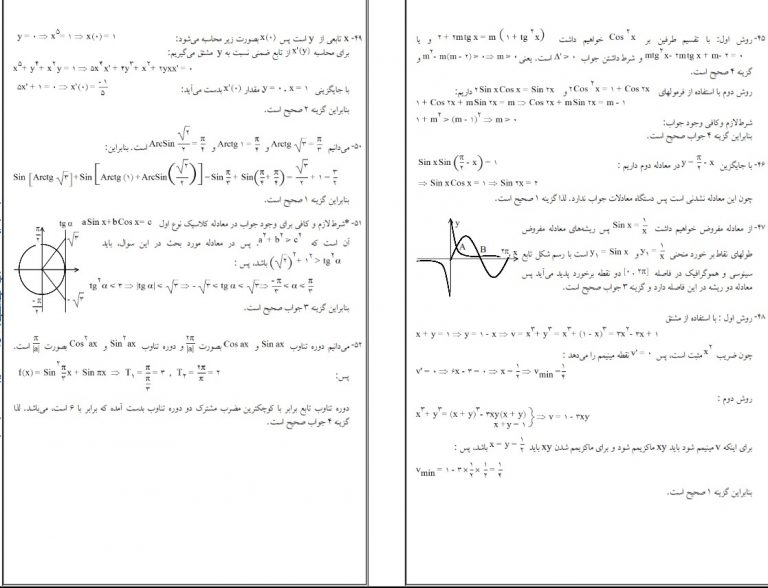 ۴۵- روش اول: با تقسیم طرفین بر Cos²x خواهیم داشت ۲ + ۲mtg x = m (۱ + tg²x) و یا
mtg²x - ۲mtg x + m - ۲ = ۰ و شرط داشتن جواب Δ' > ۰ است. یعنی m² - m(m - ۲) > ۰ ⇒ m > ۰ و
گزینه ۴ صحیح است.
روش دوم با استفاده از فرمولهای ۲Cos²x = ۱ + Cos ۲x و ۲Sin x Cos x = Sin ۲x داریم:
۱ + Cos ۲x + m Sin ۲x = m ⇒ Cos ۲x + m Sin ۲x = m - ۱
شرط لازم و کافی وجود جواب: ۱ + m² > (m - ۱)² ⇒ m > ۰
بنابراین گزینه ۴ جواب صحیح است.
۴۶- با جایگزین y = π/۲ - x در معادله دوم داریم : Sin x Sin (π/۲ - x) = ۱
⇒ Sin x Cos x = ۱ ⇒ Sin ۲x = ۲
چون این معادله نشدنی است پس دستگاه معادلات جواب ندارد. لذا گزینه ۱ صحیح است.
۴۷- از معادله مفروض خواهیم داشت Sin x = ۱/x پس ریشه‌های معادله مفروض
طولهای نقاط بر خورد منحنی y₁ = ۱/x و y₁ = Sin x است با رسم شکل تابع
سینوسی و هموگرافیک در فاصله [۰ , ۲π] دو نقطه برخورد پدید می‌آید پس
معادله دو ریشه در این فاصله دارد و گزینه ۳ جواب صحیح است.
y
A
B
۲π x
۴۸- روش اول : با استفاده از مشتق
x + y = ۱ ⇒ y = ۱ - x ⇒ v = x³ + y³ = x³ + (۱ - x)³ = ۳x² - ۳x + ۱
چون ضریب x² مثبت است، پس v' = ۰ نقطه مینیمم را می‌دهد :
v' = ۰ ⇒ ۶x - ۳ = ۰ ⇒ x = ۱/۲ ⇒ v min = ۱/۴
روش دوم :
x³ + y³ = (x + y)³ - ۳xy(x + y)
x + y = ۱ } ⇒ v = ۱ - ۳xy
برای اینکه v مینیمم شود باید xy ماکزیمم شود و برای ماکزیمم شدن xy باید x = y = ۱/۲ باشد، پس :
v min = ۱ - ۳ × ۱/۲ × ۱/۲ = ۱/۴
بنابراین گزینه ۱ صحیح است.
۴۹- x تابعی از y است پس x(۰) بصورت زیر محاسبه می‌شود: y = ۰ ⇒ x⁵ = ۱ ⇒ x(۰) = ۱
برای محاسبه x'(y) از تابع ضمنی نسبت به y مشتق می‌گیریم:
x⁵ + y⁴ + x²y = ۱ ⇒ ۵x⁴x' + ۴y³ + x² + ۲yxx' = ۰
با جایگزینی y = ۰ , x = ۱ مقدار x'(۰) بدست می‌آید: ۵x' + ۱ = ۰ ⇒ x'(۰) = -۱/۵
بنابراین گزینه ۲ صحیح است.
۵۰- می‌دانیم Arctg √۳ = π/۳ و Arctg ۱ = π/۴ و ArcSin √۲/۲ = π/۴ است. بنابراین:
Sin [Arctg √۳] + Sin [Arctg (۱) + ArcSin(√۲/۲)] = Sin π/۳ + Sin(π/۴ + π/۴) = √۳/۲ + ۱ = ۳/۲
بنابراین گزینه ۱ صحیح است.
۵۱- *شرط لازم و کافی برای وجود جواب در معادله کلاسیک نوع اول a Sin x + b Cos x = c
آن است که a² + b² > c² پس در معادله مورد بحث در این سوال، باید
(√۲)² + ۱² > tg²α باشد، پس :
tg²α < ۳ ⇒ |tg α| < √۳ ⇒ -√۳ < tg α < √۳ ⇒ -π/۳ < α < π/۳
بنابراین گزینه ۳ جواب صحیح است.
tg α
π/۲
√۳
-√۳
-π/۲
۵۲- می‌دانیم دوره تناوب Sin ax و Cos ax بصورت ۲π/|a| و دوره تناوب Sin²ax و Cos²ax بصورت π/|a| است.
پس: f(x) = Sin² π/۳ x + Sin πx ⇒ T₁ = π/(π/۳) = ۳ , T₂ = ۲π/π = ۲
دوره تناوب تابع برابر با کوچکترین مضرب مشترک دو دوره تناوب بدست آمده که برابر با ۶ است، می‌باشد. لذا
گزینه ۴ جواب صحیح است.